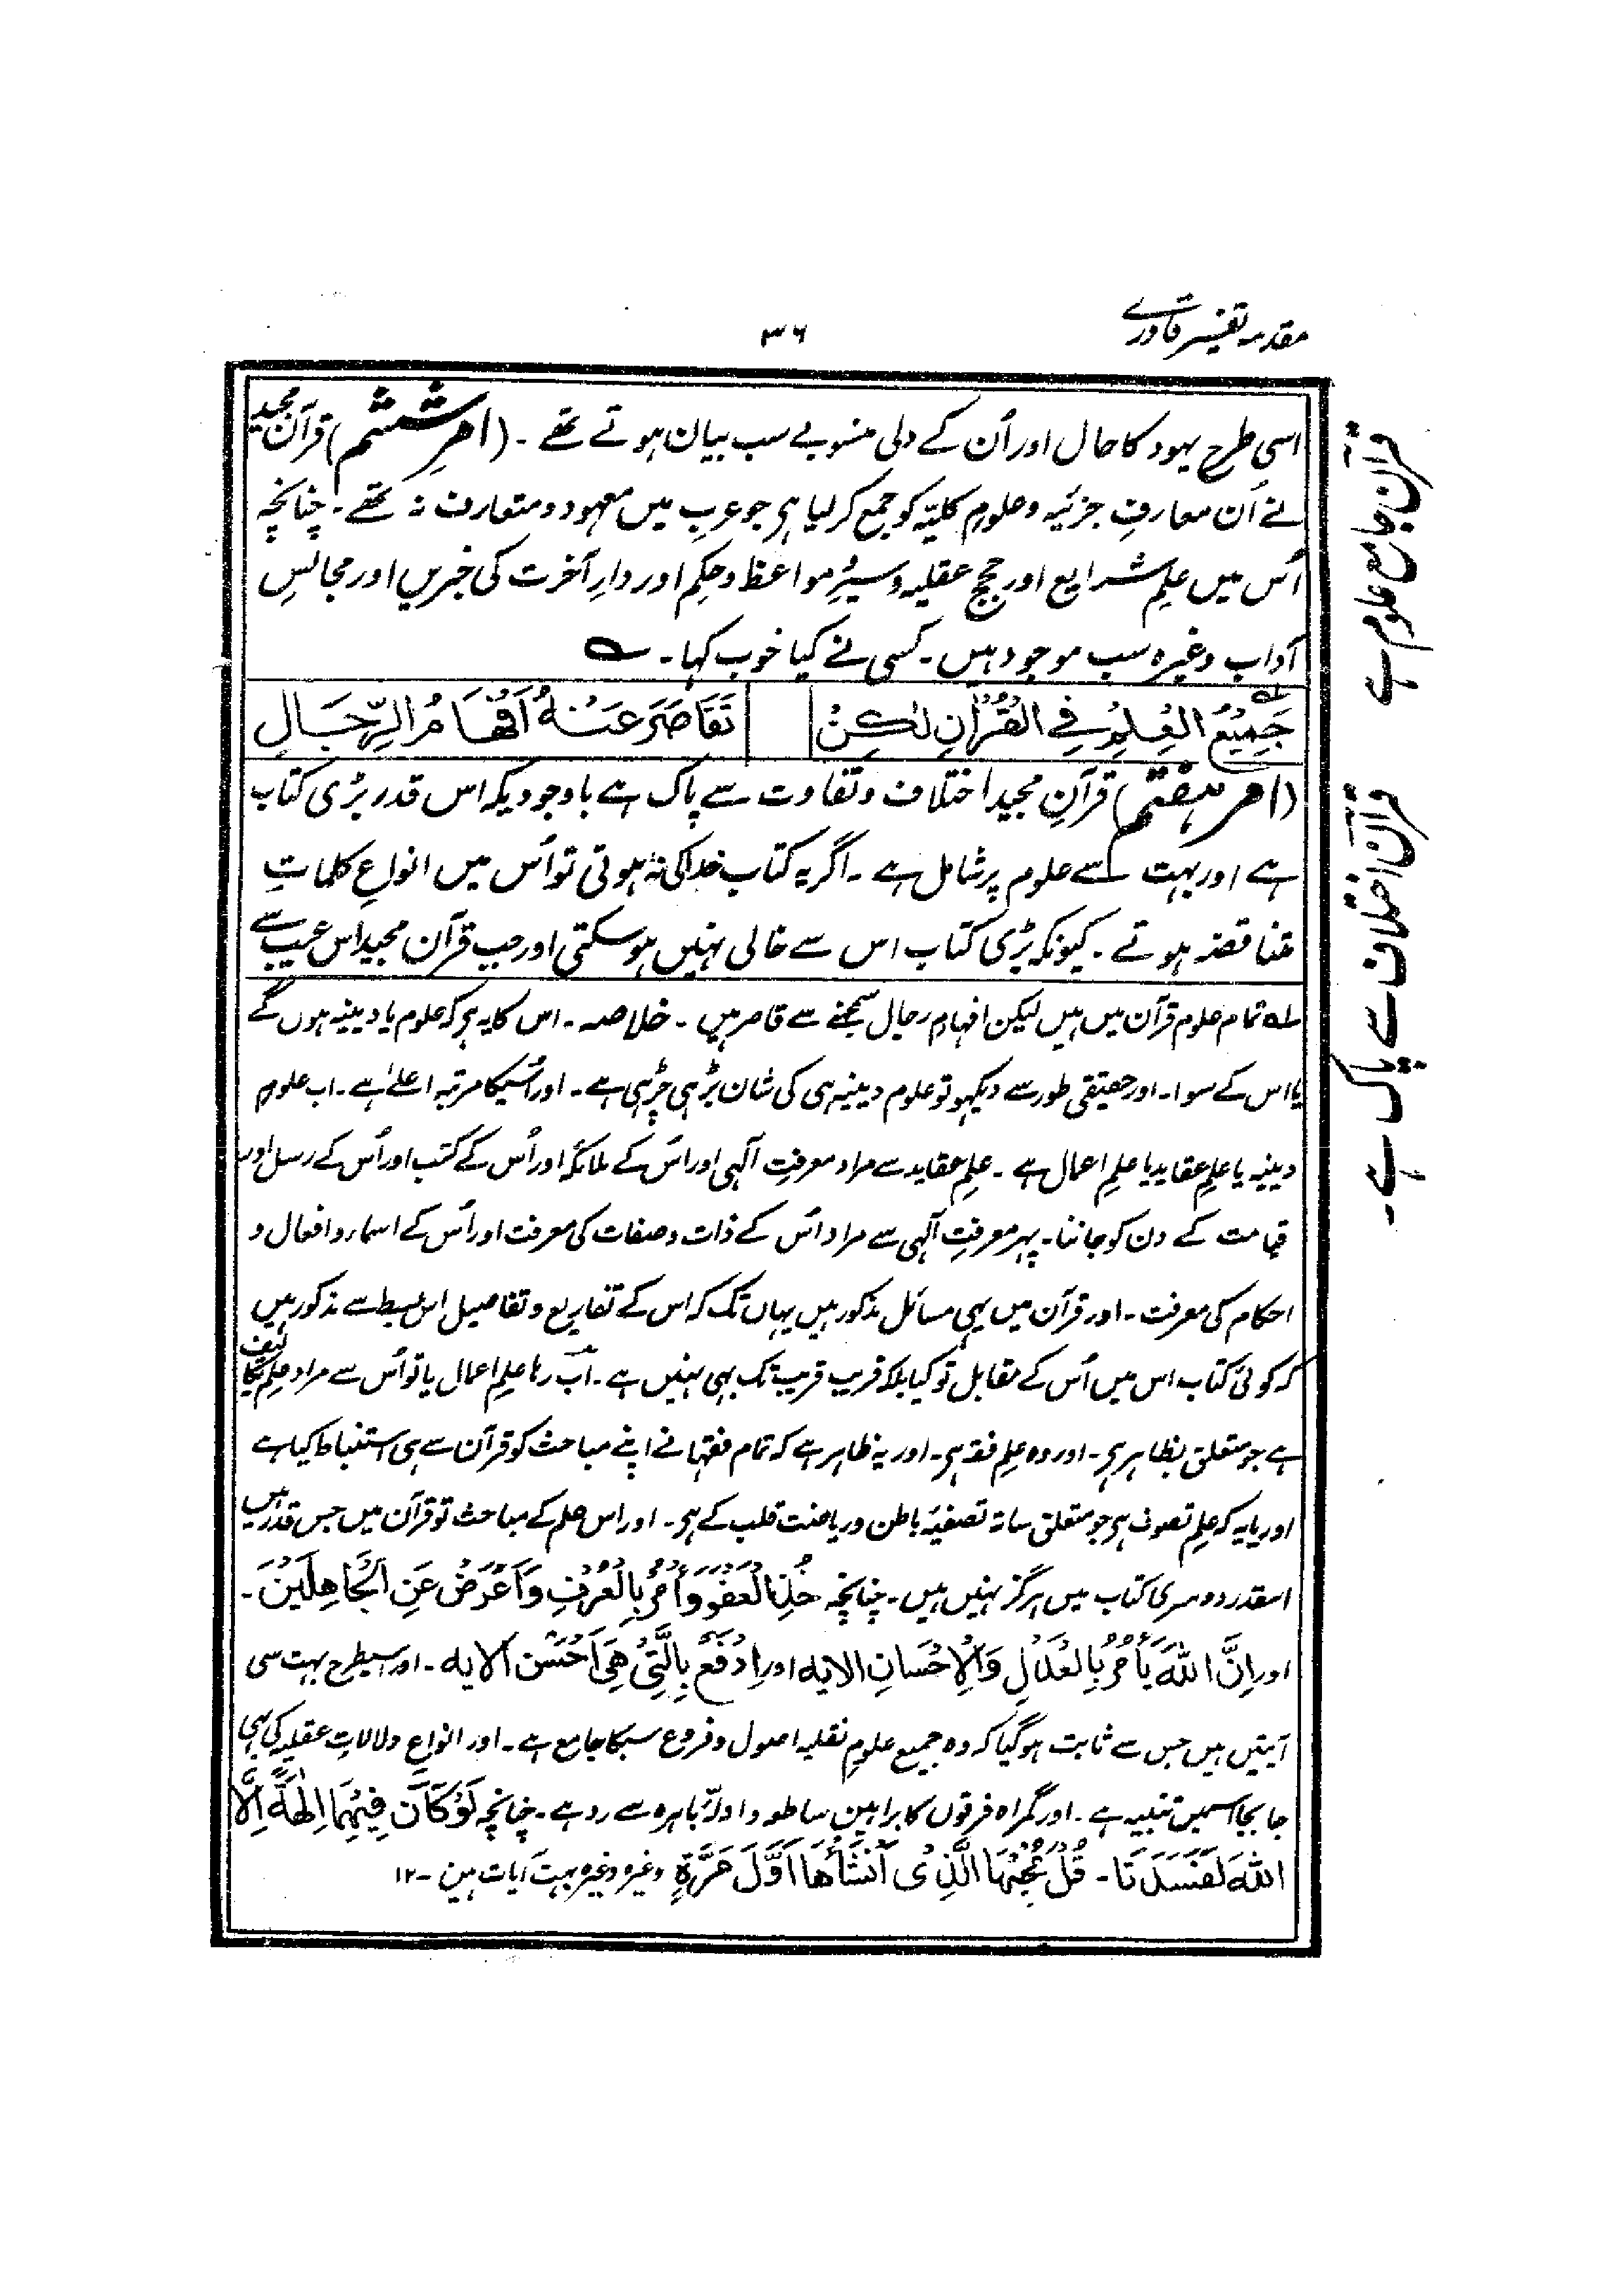 مقدمہ تفسیر قادری
۳۶
اسی طرح یہود کا حال اور اُن کے دلی منسوبے سب بیان ہوتے تھے ۔ (امرِ ششم) قرآن مجید
نے اُن معارفِ جزئیہ و علومِ کلیّہ کو جمع کر لیا ہی جو عرب میں معہود و متعارف نہ تھے ۔ چنانچہ
اُس میں علمِ شرایع اور حججِ عقلیہ و سِیَر و مواعظ و حِکم اور دارِ آخرت کی خبریں اور مجالسِ
آداب وغیرہ سب موجود ہیں ۔ کسی نے کیا خوب کہا ۔ ؎
جَمِیْعُ الْعِلْمِ فِی الْقُرْاٰنِ لٰکِنْ تَقَاصَرَ عَنْہُ اَفْہَامُ الرِّجَالِ
(امر ہفتم) قرآنِ مجید اختلاف و تفاوت سے پاک ہے باوجودیکہ اس قدر بڑی کتاب
ہے اور بہت سے علوم پر شامل ہے ۔ اگر یہ کتاب خدا کی نہ ہوتی تو اُس میں انواعِ کلماتِ
متناقضہ ہوتے ۔ کیونکہ بڑی کتاب اس سے خالی نہیں ہو سکتی اور جب قرآن مجید اس عیب سے
لہ تمام علوم قرآن میں ہیں لیکن افہامِ رجال سمجہنے سے قاصر ہیں ۔ خلاصہ ۔ اس کا یہ ہی کہ علوم یا دینیہ ہوں گے
یا اس کے سوا ۔ اور حقیقی طور سے دیکہو تو علوم دینیہ ہی کی شان بڑہی چڑہی ہے ۔ اور اُسیکا مرتبہ اعلےٰ ہے ۔ اب علومِ
دینیہ یا علمِ عقاید یا علمِ اعمال ہے ۔ علمِ عقاید سے مراد معرفتِ آلہی اور اُس کے ملائکہ اور اُس کے کتب اور اُس کے رسل اور
قیامت کے دن کو جاننا ۔ پہر معرفتِ آلہی سے مراد اُس کے ذات و صفات کی معرفت اور اُس کے اسماء و افعال و
احکام کی معرفت ۔ اور قرآن میں یہی مسائل مذکور ہیں یہاں تک کہ اس کے تفاریع و تفاصیل اس بسیط سے مذکور ہیں
کہ کوئی کتاب اس میں اُس کے مقابل تو کیا بلکہ قریب قریب تک بہی نہیں ہے ۔ اب رہا علمِ اعمال یا تو اُس سے مراد علمِ تکالیف
ہے جو متعلق بظاہر ہی ۔ اور وہ علمِ فقہ ہی ۔ اور یہ ظاہر ہے کہ تمام فقہا نے اپنے مباحث کو قرآن سے ہی استنباط کیا ہے
اور یا یہ کہ علمِ تصوف ہی جو متعلق ساتہ تصفیۂ باطن و ریاضت قلب کے ہی ۔ اور اس علم کے مباحث تو قرآن میں جس قدر ہیں
اسقدر دوسری کتاب میں ہرگز نہیں ہیں ۔ چنانچہ خُذِ الْعَفْوَ وَاْمُرْ بِالْعُرْفِ وَاَعْرِضْ عَنِ الْجَاهِلِیْنَ ۔
اور اِنَّ اللّٰہَ یَأْمُرُ بِالْعَدْلِ وَالْاِحْسَانِ الایہ اور اِدْفَعْ بِالَّتِیْ هِیَ اَحْسَنُ الایہ ۔ اور اسیطرح بہت سی
آیتیں ہیں جس سے ثابت ہو گیا کہ وہ جمیع علومِ نقلیہ اصول و فروع سبکا جامع ہے ۔ اور انواعِ دلالاتِ عقلیہ کی بہی
جا بجا اسمیں تنبیہ ہے ۔ اور گمراہ فرقوں کا براہینِ ساطعہ و ادلّہ باہرہ سے رد ہے ۔ چنانچہ لَوْ کَانَ فِیْهِمَا اٰلِهَةٌ اِلَّا
اللّٰہُ لَفَسَدَتَا ۔ قُلْ یُحْیِیْهَا الَّذِیْ اَنْشَأَهَا اَوَّلَ مَرَّةٍ وغیرہ وغیرہ بہت آیات ہین ۔ ۱۲
قرآن جامع علوم ہے
قرآن اختلاف سے پاک ہے ۔